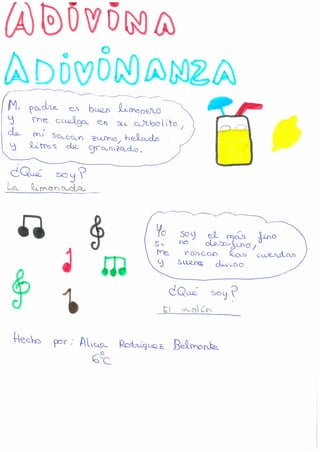 ADIVINA
ADIVINANZA
Mi padre es buen limonero
y me cuelga en su arbolito,
de mí sacan zumo, helado
y litros de granizado.
¿Qué soy?
La limonada
Yo soy el más fino
si no desafino,
me rascan las cuerdas
y suene divino
¿Qué soy?
El violín
Hecho por: Alicia Rodríguez Belmonte
6ºC